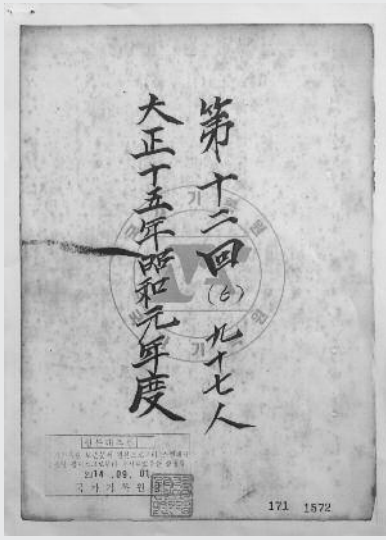 第十二回(6) 九十七人
大正十五年昭和元年度
2014.09.01
국가기록원
171 1572